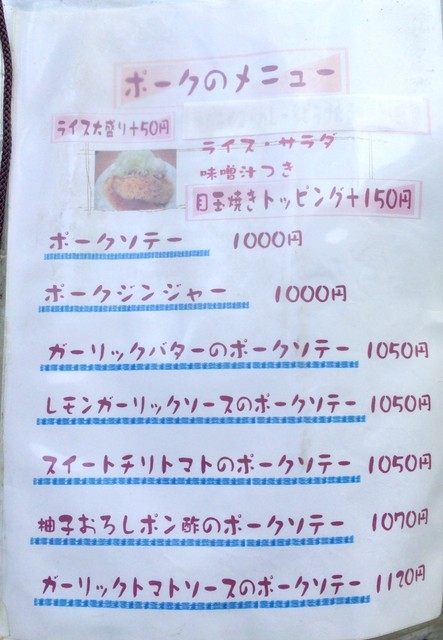 ポークのメニュー
ライス大盛り+50円
ライス・サラダ
味噌汁つき
目玉焼きトッピング+150円
ポークソテー 1000円
ポークジンジャー 1000円
ガーリックバターのポークソテー 1050円
レモンガーリックソースのポークソテー 1050円
スイートチリトマトのポークソテー 1050円
柚子おろしポン酢のポークソテー 1070円
ガーリックトマトソースのポークソテー 1120円